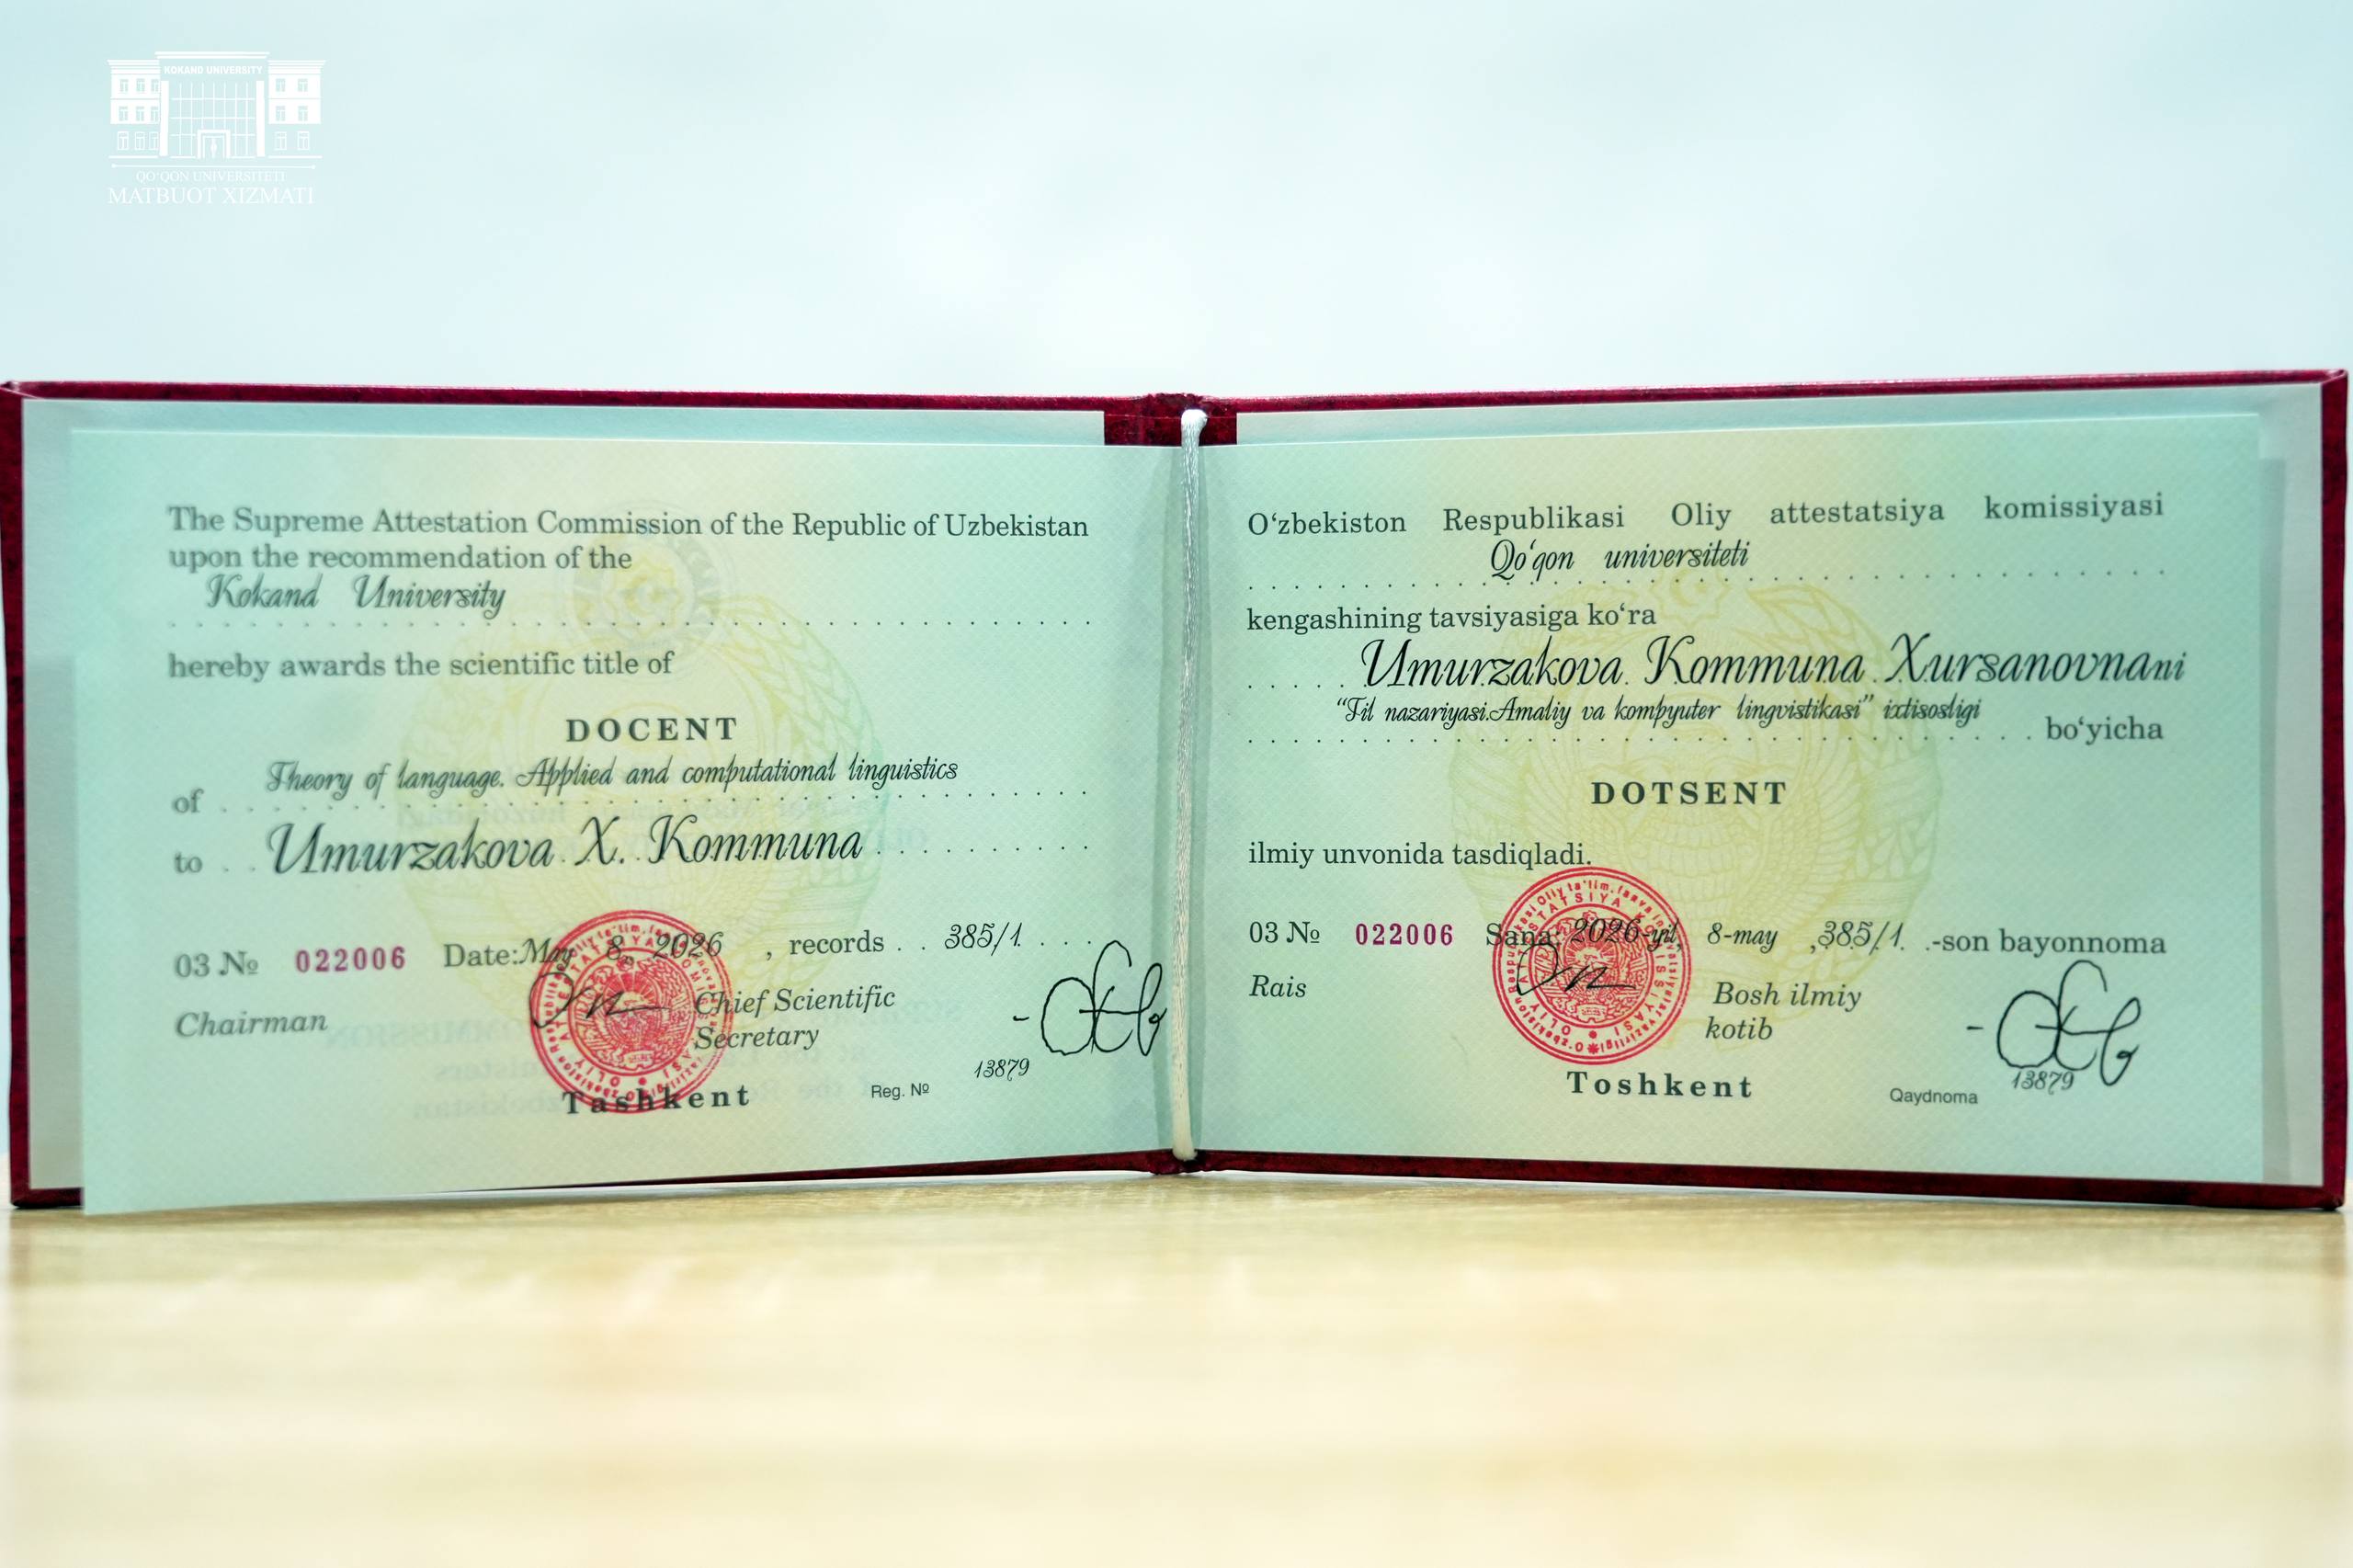 KOKAND UNIVERSITY
QO‘QON UNIVERSITETI
MATBUOT XIZMATI
The Supreme Attestation Commission of the Republic of Uzbekistan
upon the recommendation of the
Kokand University
hereby awards the scientific title of
DOCENT
Theory of language. Applied and computational linguistics
of
to Umurzakova X. Kommuna
03 № 022006 Date: May 8, 2026, records 385/1
Chairman
Chief Scientific
Secretary
13879
Tashkent Reg. №
O‘zbekiston Respublikasi Oliy attestatsiya komissiyasi
Qo‘qon universiteti
kengashining tavsiyasiga ko‘ra
Umurzakova Kommuna Xursanovnani
“Til nazariyasi.Amaliy va kompyuter lingvistikasi” ixtisosligi
bo‘yicha
DOTSENT
ilmiy unvonida tasdiqladi.
03 № 022006 Sana: 2026-yil, 8-may, 385/1 -son bayonnoma
Rais
Bosh ilmiy
kotib
13879
Toshkent Qaydnoma